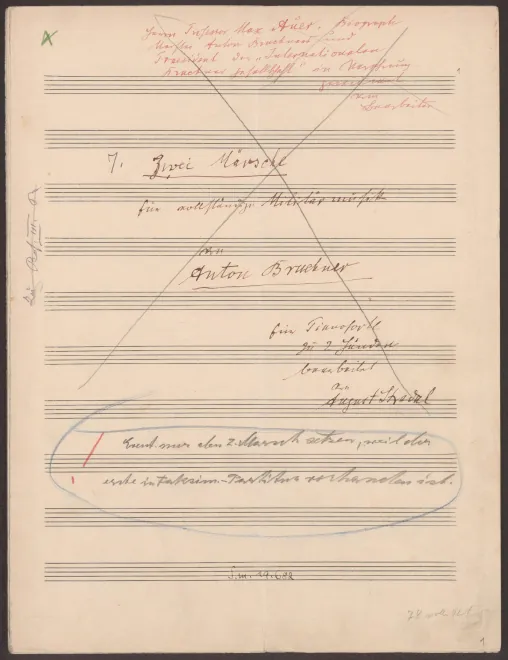 Herrn Professor Max Auer, Biograph
Meister Anton Bruckners und
Präsident der „Internationalen
Bruckner Gesellschaft" in Verehrung
gewidmet
vom
Bearbeiter
7. Zwei Märsche
für vollständige Militärmusik
von
Anton Bruckner
für Pianoforte
zu 2 Händen
bearbeitet
von
August Stradal
Event. nur den 2. Marsch setzen, weil der
erste in Faksim.-Partitur vorhanden ist.
S.m. 29.602
1